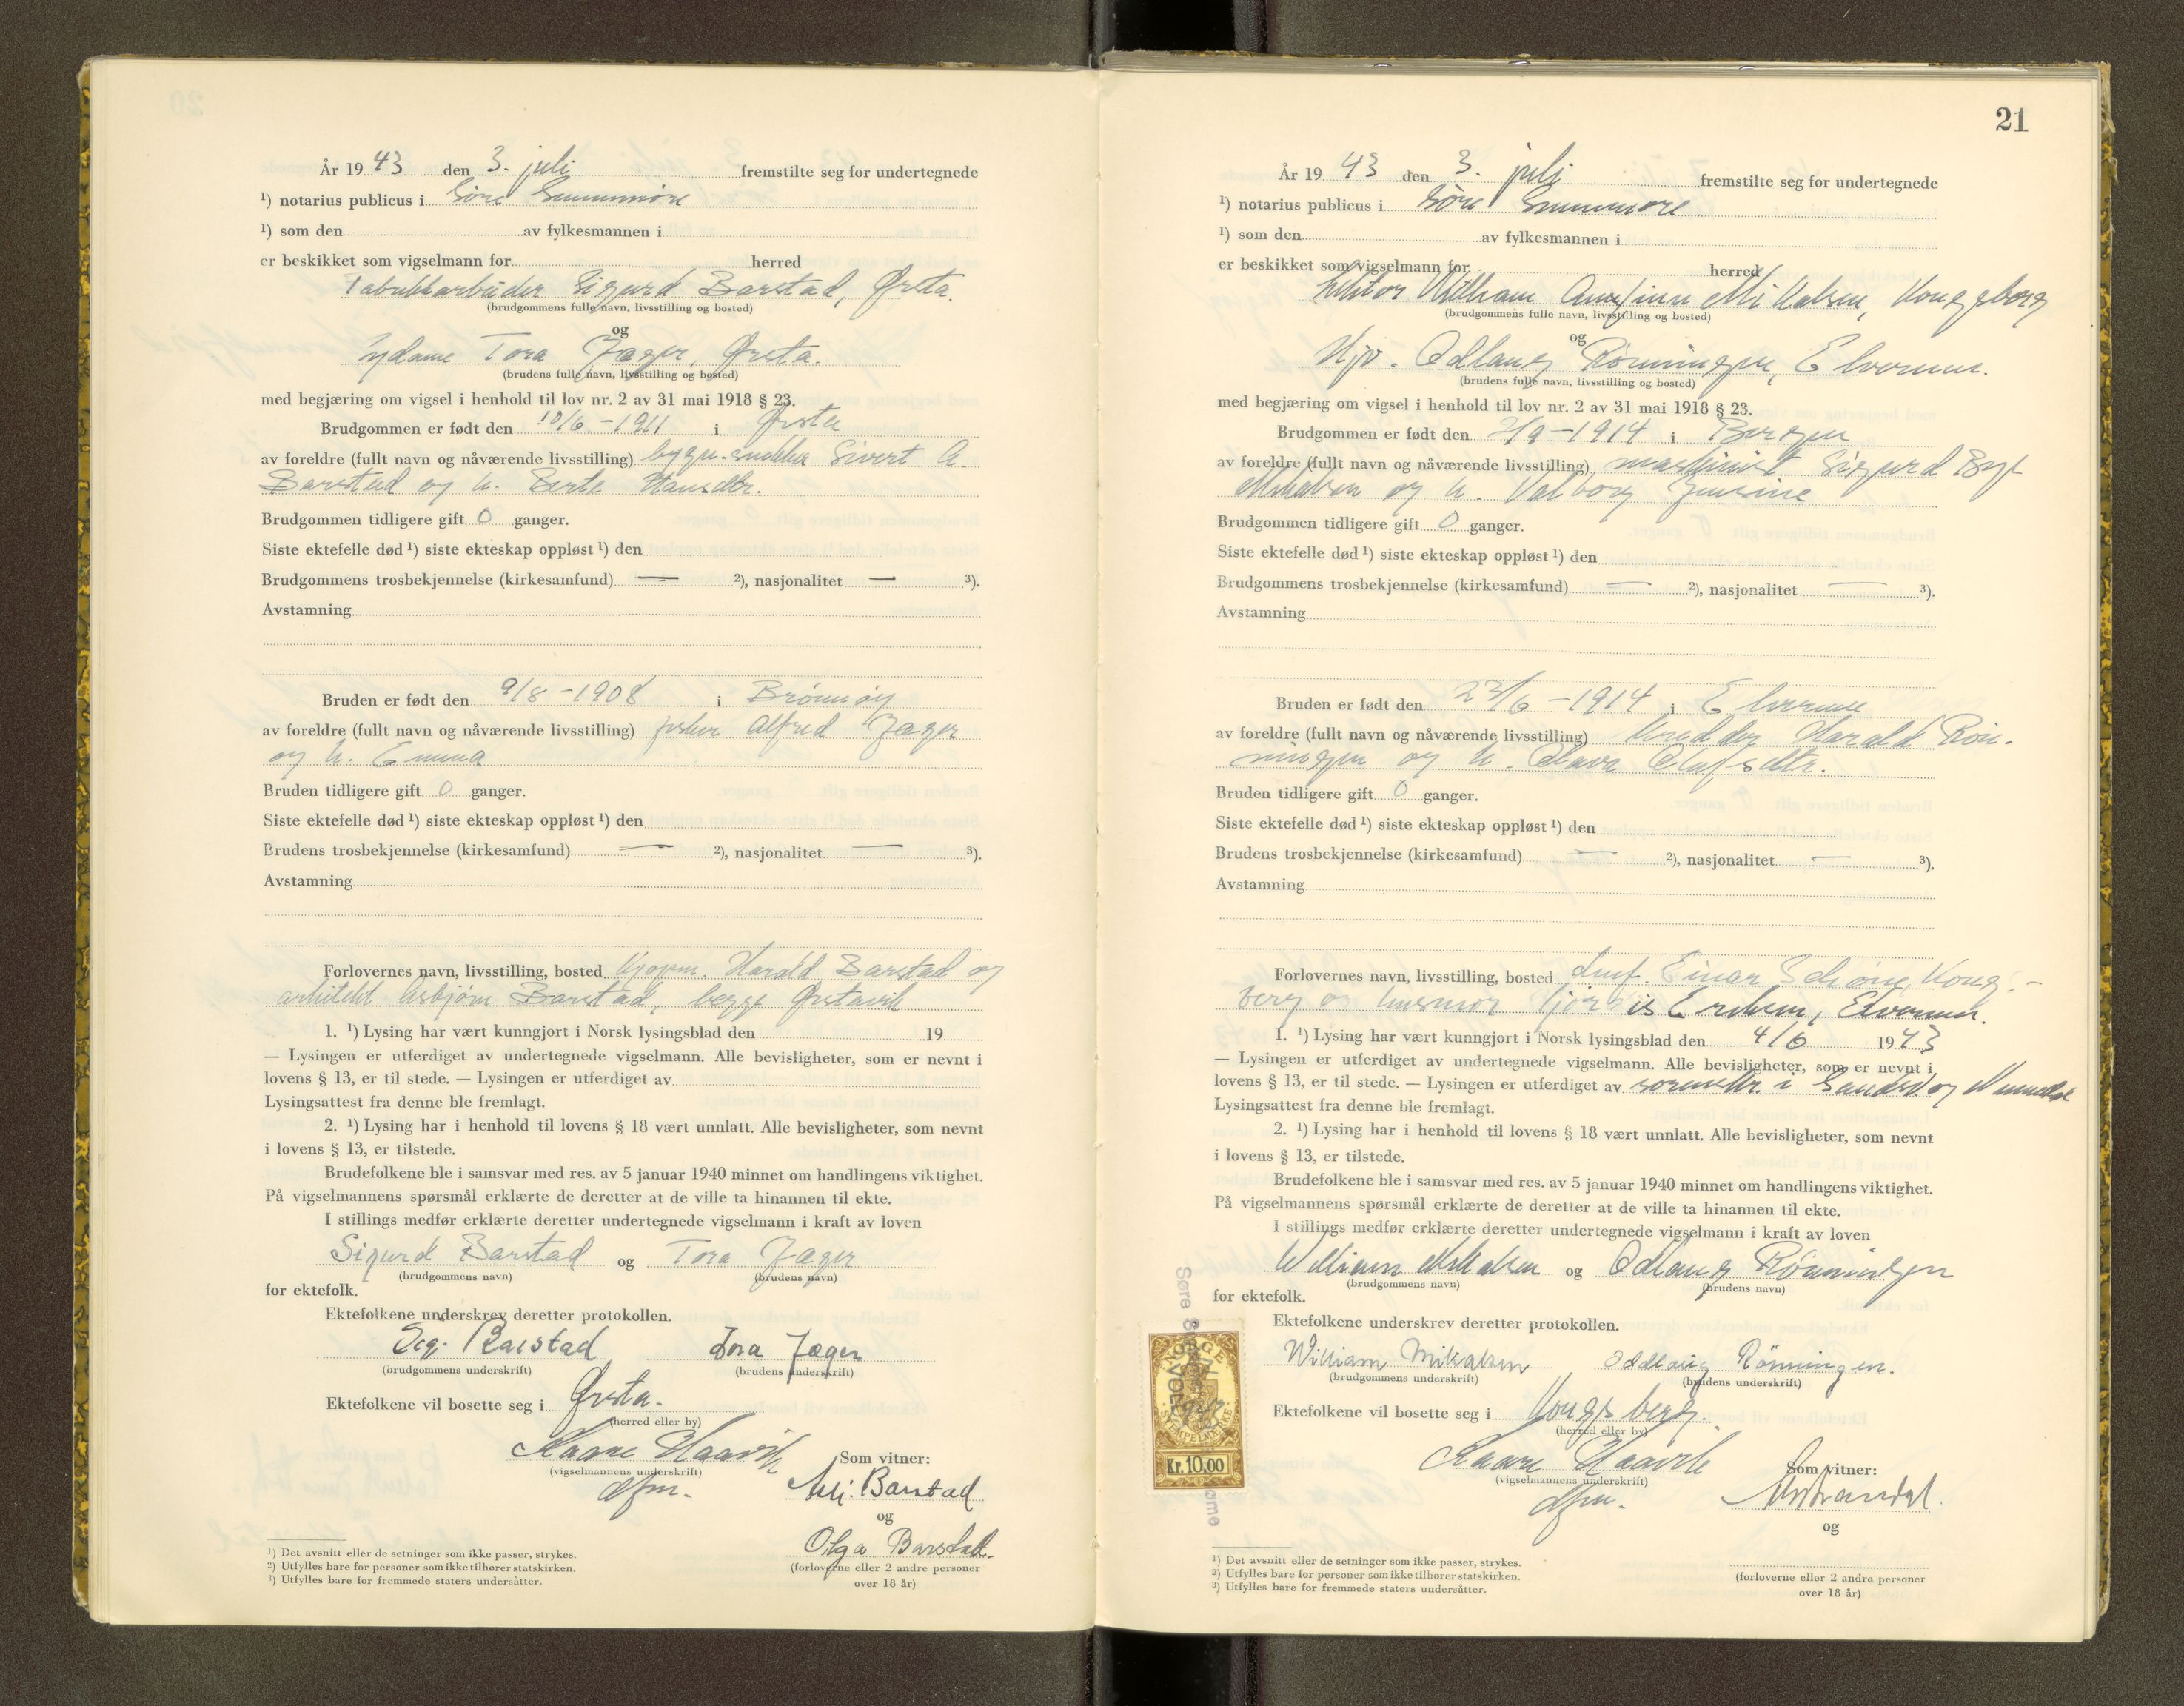 År 19 43 den 3. juli fremstilte seg for undertegnede
¹) notarius publicus i Søre Sunnmøre
¹) som den av fylkesmannen i
er beskikket som vigselmann for herred
Fabrikkarbeider Sigurd Barstad, Ørsta.
(brudgommens fulle navn, livsstilling og bosted)
og
Sydame Tora Jæger, Ørsta.
(brudens fulle navn, livsstilling og bosted)
med begjæring om vigsel i henhold til lov nr. 2 av 31 mai 1918 § 23.
Brudgommen er født den 10/6 - 1911 i Ørsta
av foreldre (fullt navn og nåværende livsstilling) bygn.snekker Sivert A.
Barstad og h. Berte Hansdtr.
Brudgommen tidligere gift 0 ganger.
Siste ektefelle død ¹) siste ekteskap oppløst ¹) den
Brudgommens trosbekjennelse (kirkesamfund) — ²), nasjonalitet — ³).
Avstamning
Bruden er født den 9/8 - 1908 i Brønnøy
av foreldre (fullt navn og nåværende livsstilling) fisker Alfred Jæger
og h. Emma
Bruden tidligere gift 0 ganger.
Siste ektefelle død ¹) siste ekteskap oppløst ¹) den
Brudens trosbekjennelse (kirkesamfund) — ²), nasjonalitet — ³).
Avstamning
Forlovernes navn, livsstilling, bosted Kjøpm. Harald Barstad og
arkitekt Asbjørn Barstad, begge Ørstavik
1. ¹) Lysing har vært kunngjort i Norsk lysingsblad den 19
— Lysingen er utferdiget av undertegnede vigselmann. Alle bevisligheter, som er nevnt i
lovens § 13, er til stede. — Lysingen er utferdiget av
Lysingsattest fra denne ble fremlagt.
2. ¹) Lysing har i henhold til lovens § 18 vært unnlatt. Alle bevisligheter, som nevnt
i lovens § 13, er tilstede.
Brudefolkene ble i samsvar med res. av 5 januar 1940 minnet om handlingens viktighet.
På vigselmannens spørsmål erklærte de deretter at de ville ta hinannen til ekte.
I stillings medfør erklærte deretter undertegnede vigselmann i kraft av loven
Sigurd Barstad og Tora Jæger
(brudgommens navn) (brudens navn)
for ektefolk.
Ektefolkene underskrev deretter protokollen.
Sig. Barstad Tora Jæger
(brudgommens underskrift) (brudens underskrift)
Ektefolkene vil bosette seg i Ørsta.
(herred eller by)
Kaare Haavik Som vitner:
(vigselmannens underskrift)
dfm. Asbj. Barstad
og
Olga Barstad.
(forloverne eller 2 andre personer
over 18 år)
¹) Det avsnitt eller de setninger som ikke passer, strykes.
²) Utfylles bare for personer som ikke tilhører statskirken.
³) Utfylles bare for fremmede staters undersåtter.
21
År 19 43 den 3. juli fremstilte seg for undertegnede
¹) notarius publicus i Søre Sunnmøre
¹) som den av fylkesmannen i
er beskikket som vigselmann for herred
Lektor William Annfinn Mikalsen, Kongsberg
(brudgommens fulle navn, livsstilling og bosted)
og
Oddlaug Rønningen, Elverum.
(brudens fulle navn, livsstilling og bosted)
med begjæring om vigsel i henhold til lov nr. 2 av 31 mai 1918 § 23.
Brudgommen er født den 2/9 - 1914 i Bergen
av foreldre (fullt navn og nåværende livsstilling) maskinist Sigurd
Mikalsen og h. Valborg Jensine
Brudgommen tidligere gift 0 ganger.
Siste ektefelle død ¹) siste ekteskap oppløst ¹) den
Brudgommens trosbekjennelse (kirkesamfund) — ²), nasjonalitet — ³).
Avstamning
Bruden er født den 23/6 - 1914 i Elverum
av foreldre (fullt navn og nåværende livsstilling) Harald Røn-
ningen og h. Olava Olafsdtr.
Bruden tidligere gift 0 ganger.
Siste ektefelle død ¹) siste ekteskap oppløst ¹) den
Brudens trosbekjennelse (kirkesamfund) — ²), nasjonalitet — ³).
Avstamning
Forlovernes navn, livsstilling, bosted Einar Schøne, Kongs-
berg og husmor Hjørdis Eriksen, Elverum.
1. ¹) Lysing har vært kunngjort i Norsk lysingsblad den 4/6 19 43
— Lysingen er utferdiget av undertegnede vigselmann. Alle bevisligheter, som er nevnt i
lovens § 13, er til stede. — Lysingen er utferdiget av sorenskr. i Sandsv. og Numedal
Lysingsattest fra denne ble fremlagt.
2. ¹) Lysing har i henhold til lovens § 18 vært unnlatt. Alle bevisligheter, som nevnt
i lovens § 13, er tilstede.
Brudefolkene ble i samsvar med res. av 5 januar 1940 minnet om handlingens viktighet.
På vigselmannens spørsmål erklærte de deretter at de ville ta hinannen til ekte.
I stillings medfør erklærte deretter undertegnede vigselmann i kraft av loven
William Mikalsen og Oddlaug Rønningen
(brudgommens navn) (brudens navn)
for ektefolk.
Ektefolkene underskrev deretter protokollen.
William Mikalsen Oddlaug Rønningen.
(brudgommens underskrift) (brudens underskrift)
Ektefolkene vil bosette seg i Kongsberg.
(herred eller by)
Kaare Haavik Som vitner:
(vigselmannens underskrift)
dfm.
og
(forloverne eller 2 andre personer
over 18 år)
NORGE
STEMPELMERKE
Kr. 10,00
¹) Det avsnitt eller de setninger som ikke passer, strykes.
²) Utfylles bare for personer som ikke tilhører statskirken.
³) Utfylles bare for fremmede staters undersåtter.